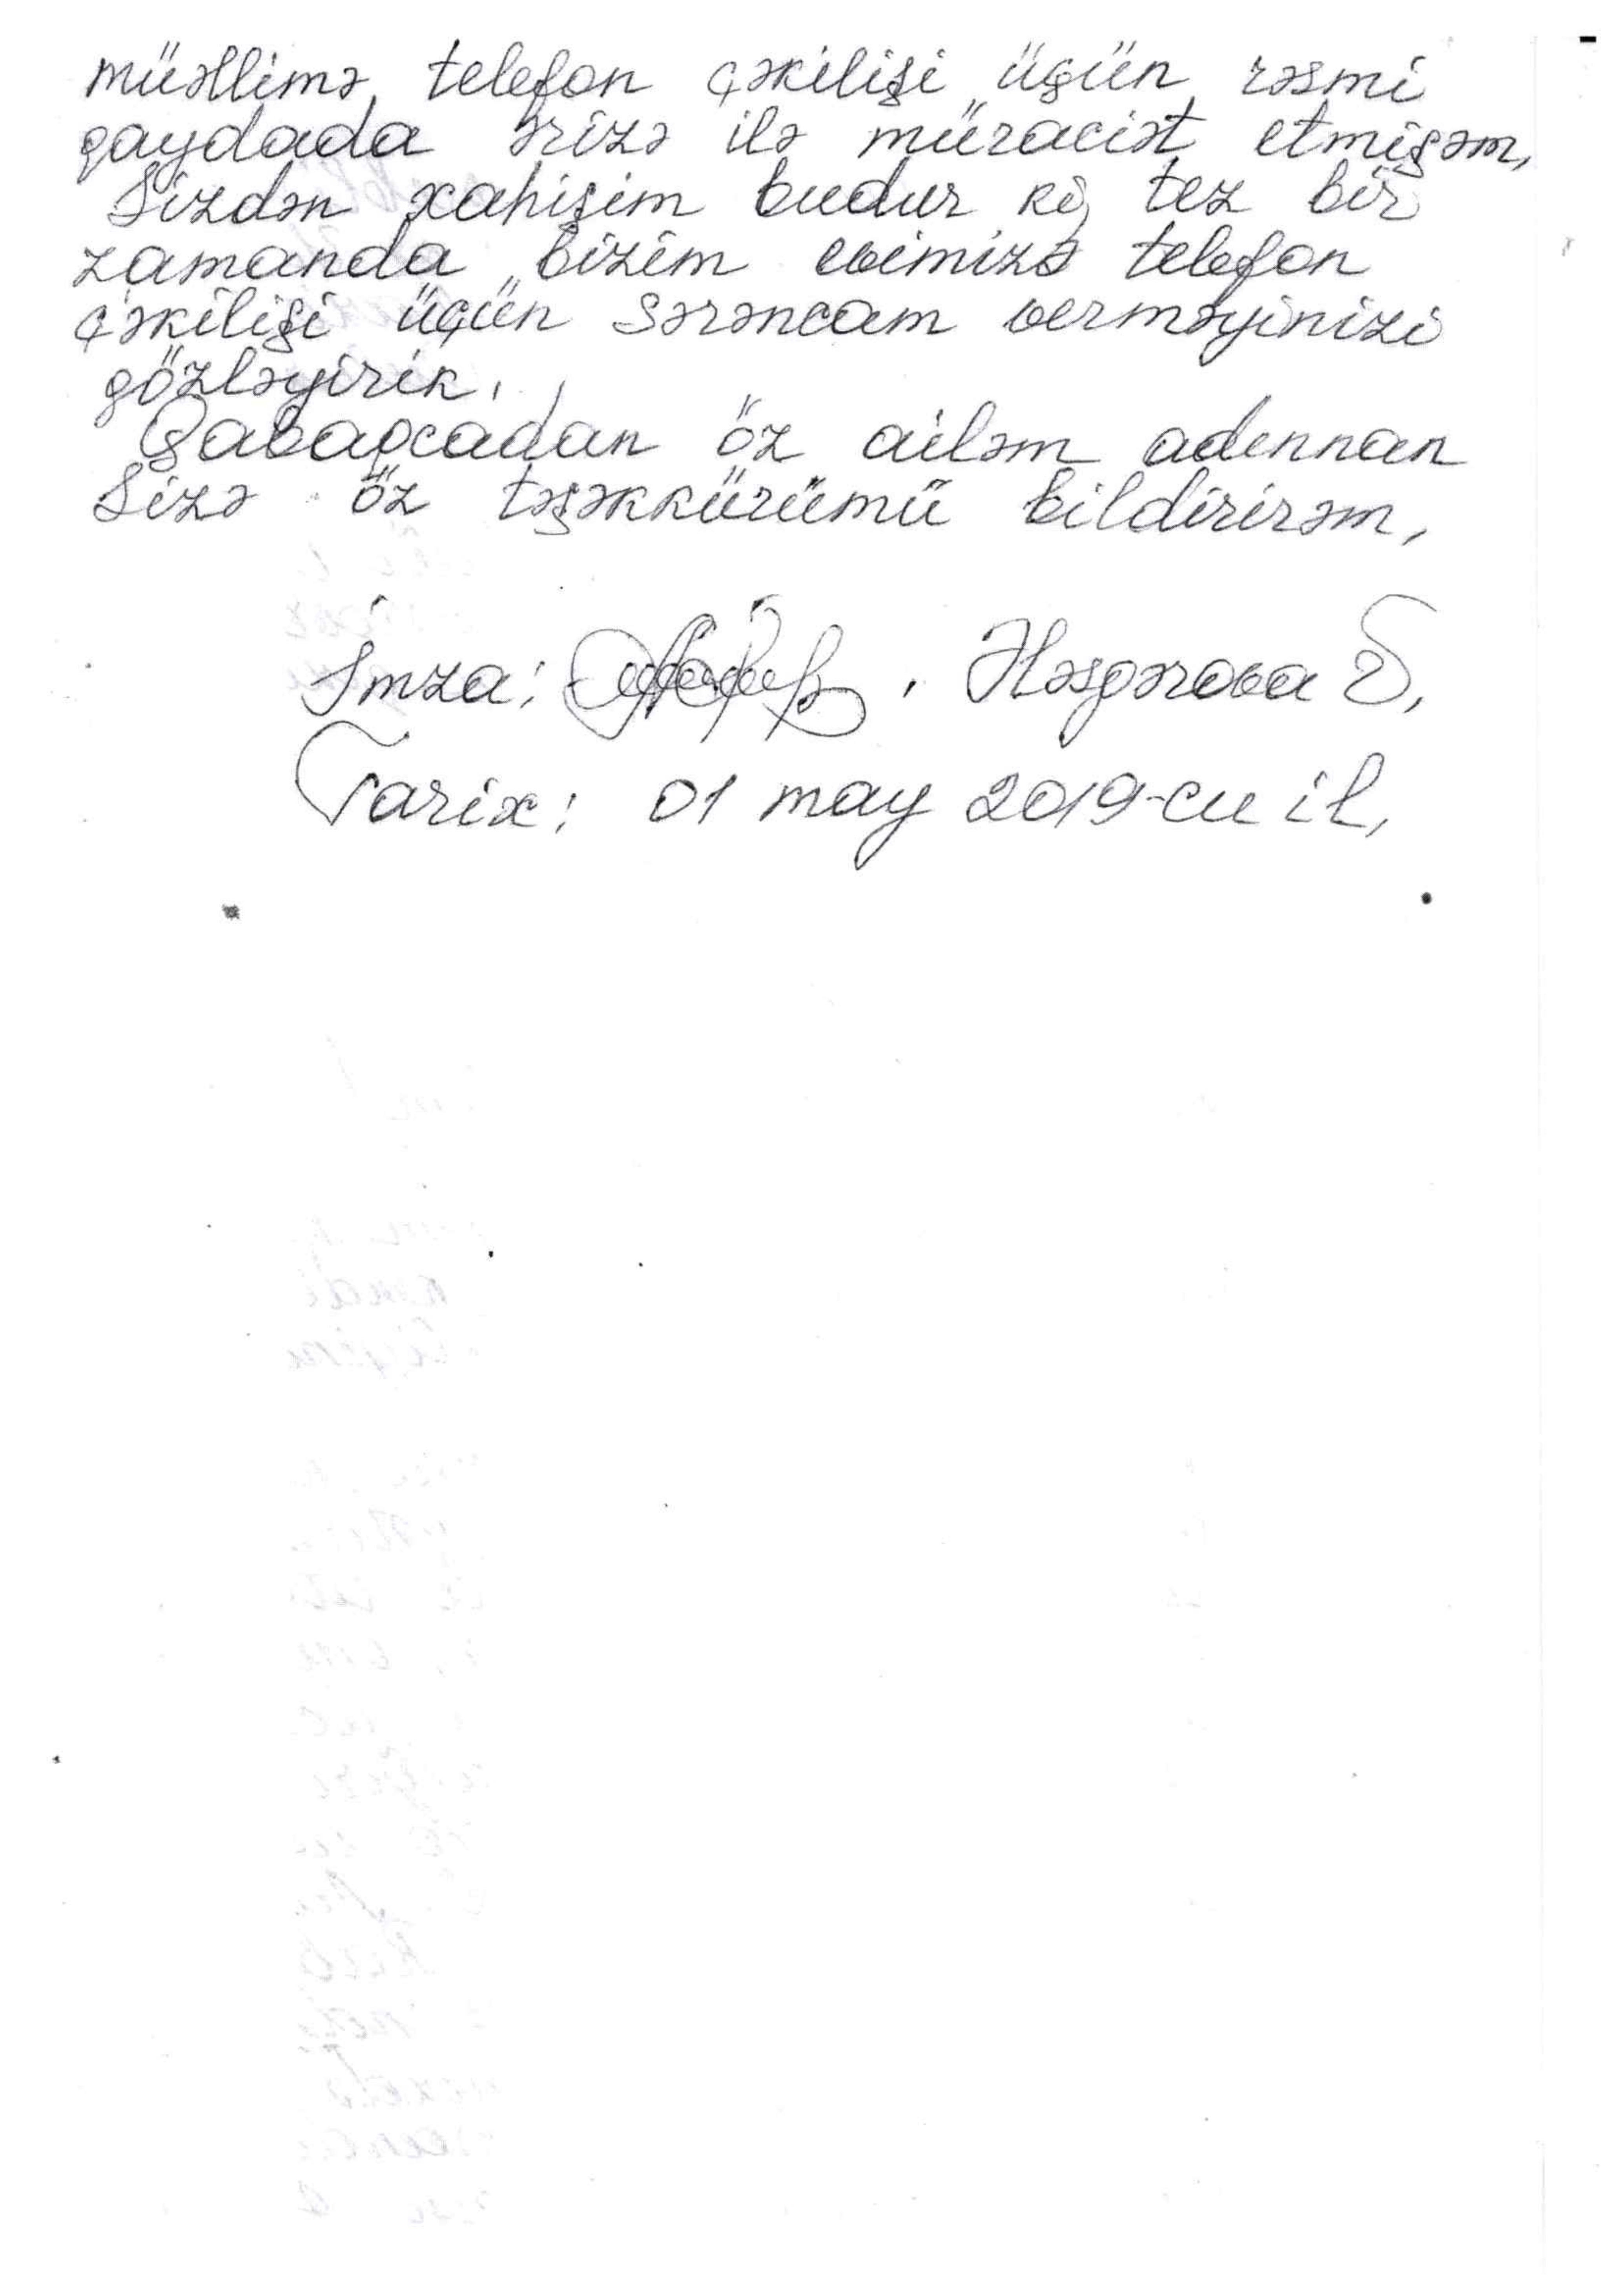 müəllimə telefon çəkilişi üçün rəsmi
qaydada ərizə ilə müraciət etmişəm,
Sizdən xahişim budur ki, tez bir
zamanda bizim evimizə telefon
çəkilişi üçün sərəncam verməyinizi
gözləyirik.
Qabaqcadan öz ailəm adınnan
Sizə öz təşəkkürümü bildirirəm,
İmza: , Həsgərova S,
Tarix: 01 may 2019-cu il,